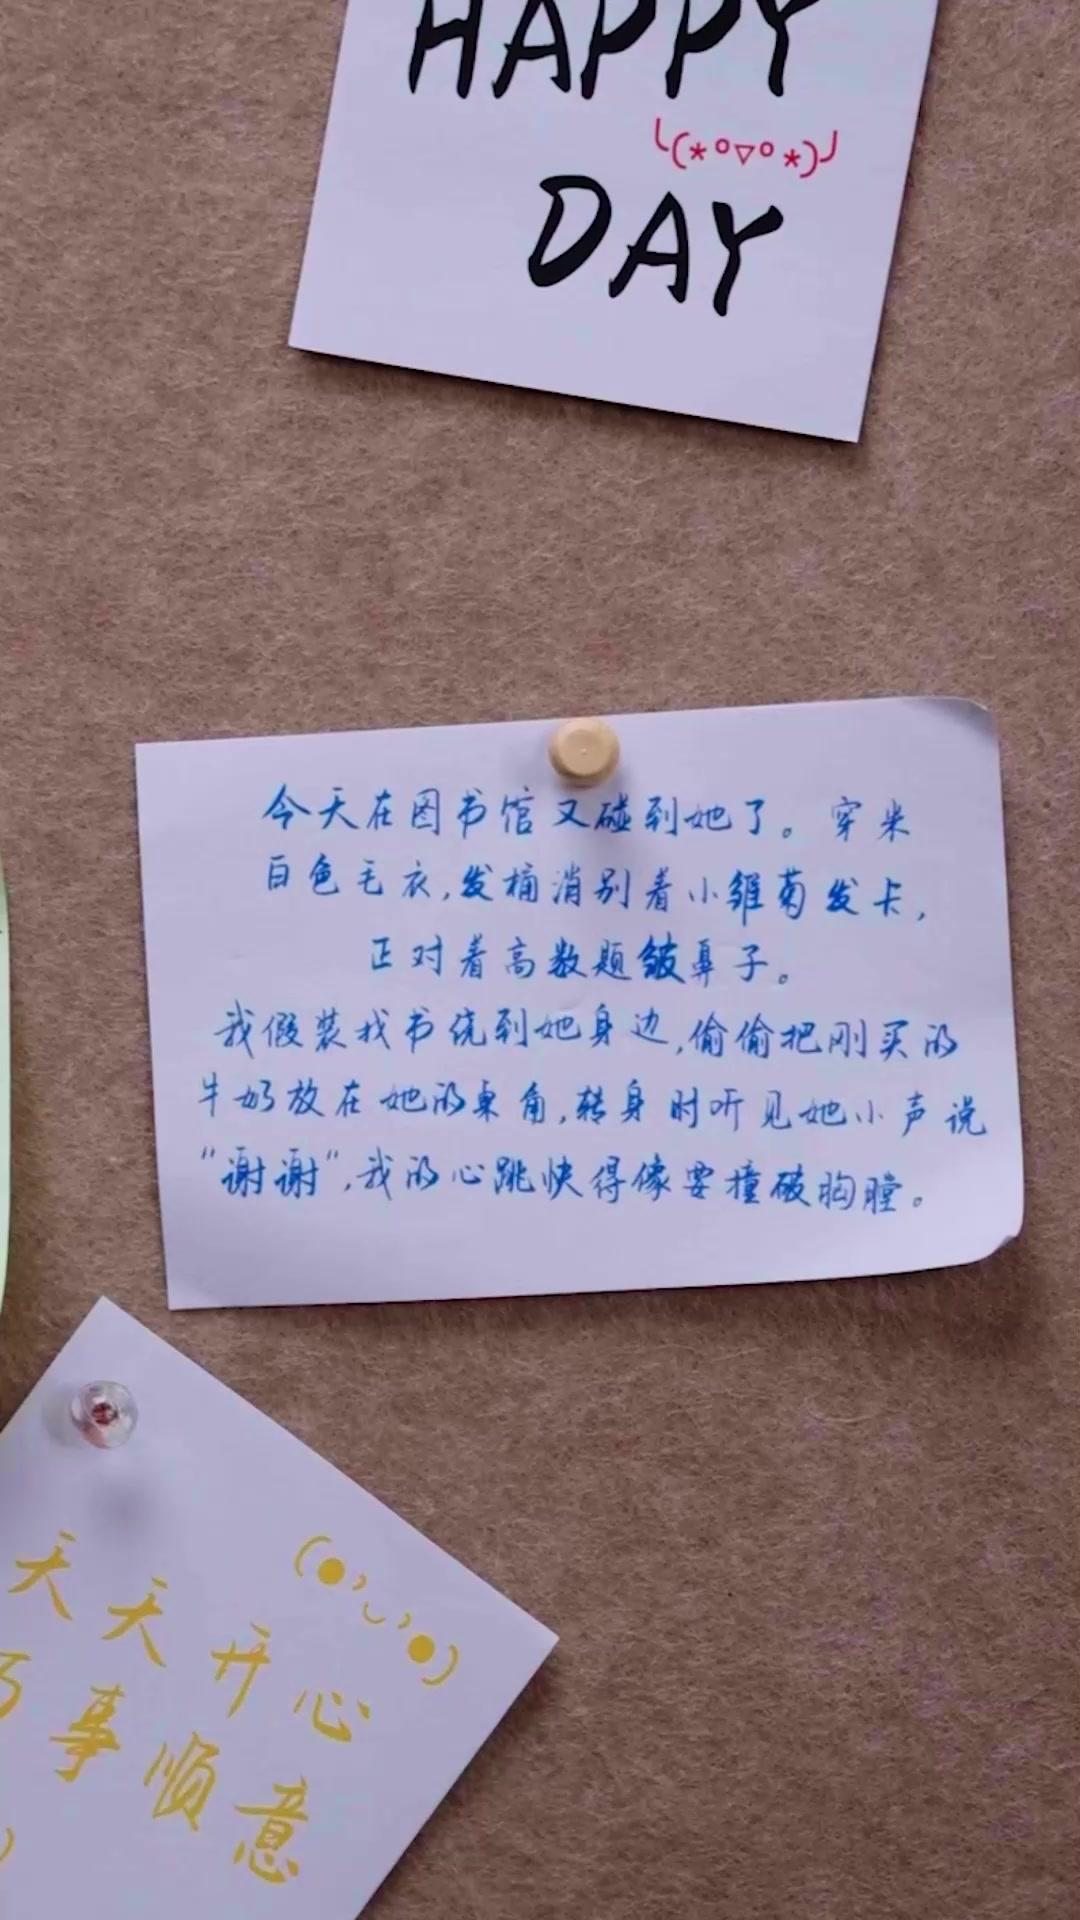 HAPPY
╰(*°▽°*)╯
DAY
今天在图书馆又碰到她了。穿米
白色毛衣,发桶消别着小雏菊发卡,
正对着高数题皱鼻子。
我假装找书绕到她身边,偷偷把刚买的
牛奶放在她的桌角,转身时听见她小声说
“谢谢”,我的心跳快得像要撞破胸膛。
(●'◡'●)
天天开心
万事顺意